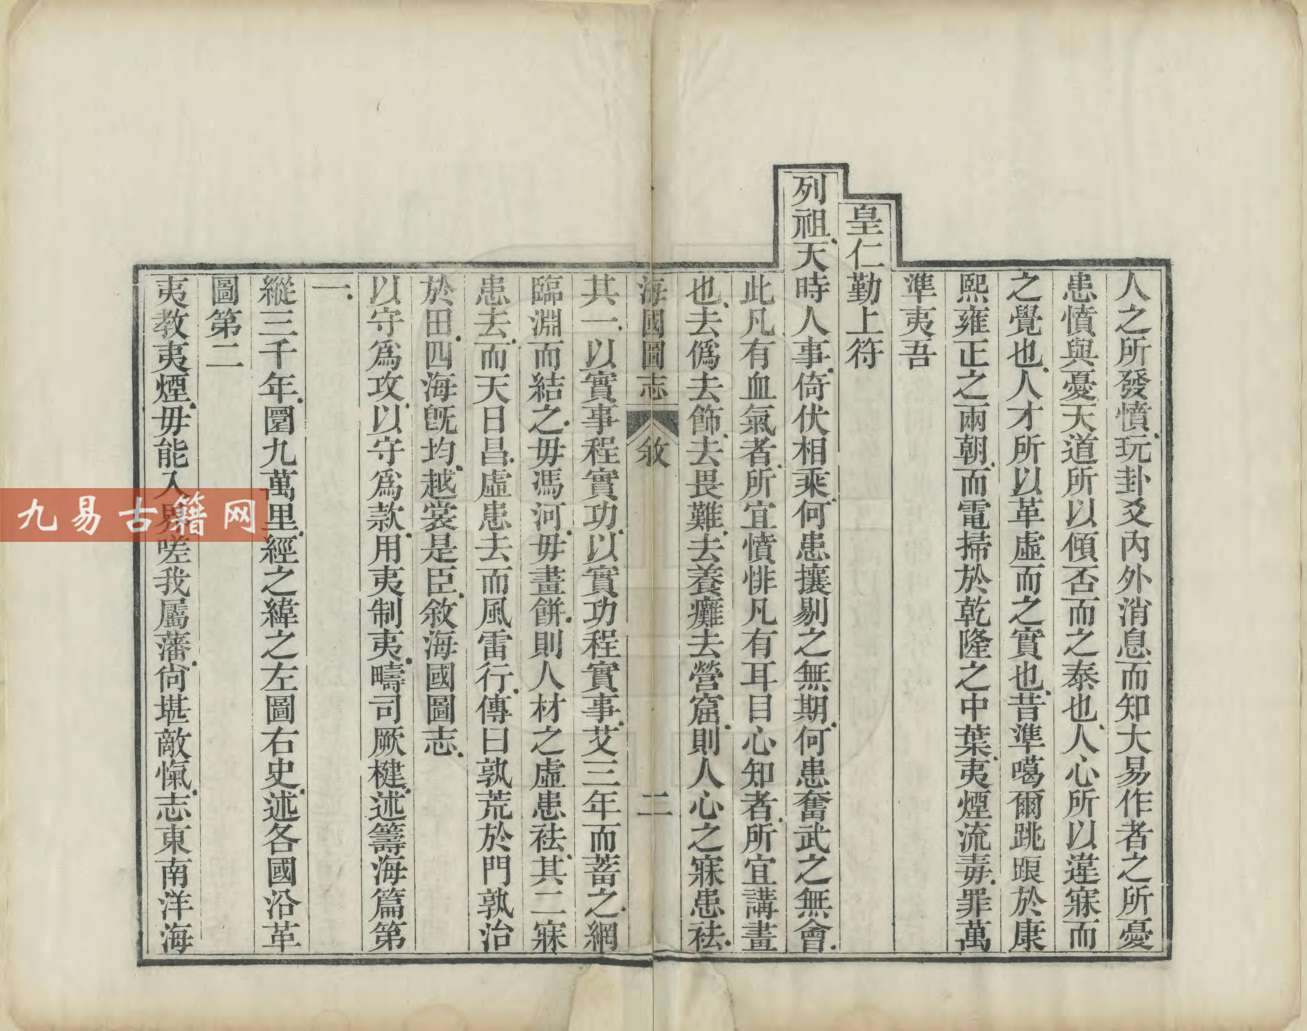 人之所發憤玩卦爻內外消息而知大易作者之所憂
患憤與憂天道所以傾否而之泰也人心所以違寐而
之覺也人才所以革虛而之實也昔準噶爾跳踉於康
熙雍正之兩朝而電掃於乾隆之中葉夷煙流毒罪萬
準夷吾
皇仁勤上符
列祖天時人事倚伏相乘何患攘剔之無期何患奮武之無會
此凡有血氣者所宜憤悱凡有耳目心知者所宜講畫
也去僞去飾去畏難去養癰去營窟則人心之寐患祛
海國圖志 敘 二
其一以實事程實功以實功程實事艾三年而蓄之網
臨淵而結之毋馮河毋畫餅則人材之虛患祛其二寐
患去而天日昌虛患去而風雷行傳曰孰荒於門孰治
於田四海旣均越裳是臣敘海國圖志
以守爲攻以守爲款用夷制夷疇司厥楗述籌海篇第
一
縱三千年圜九萬里經之緯之左圖右史述各國沿革
圖第二
夷教夷煙毋能入界嗟我屬藩尙堪敵愾志東南洋海
九易古籍网